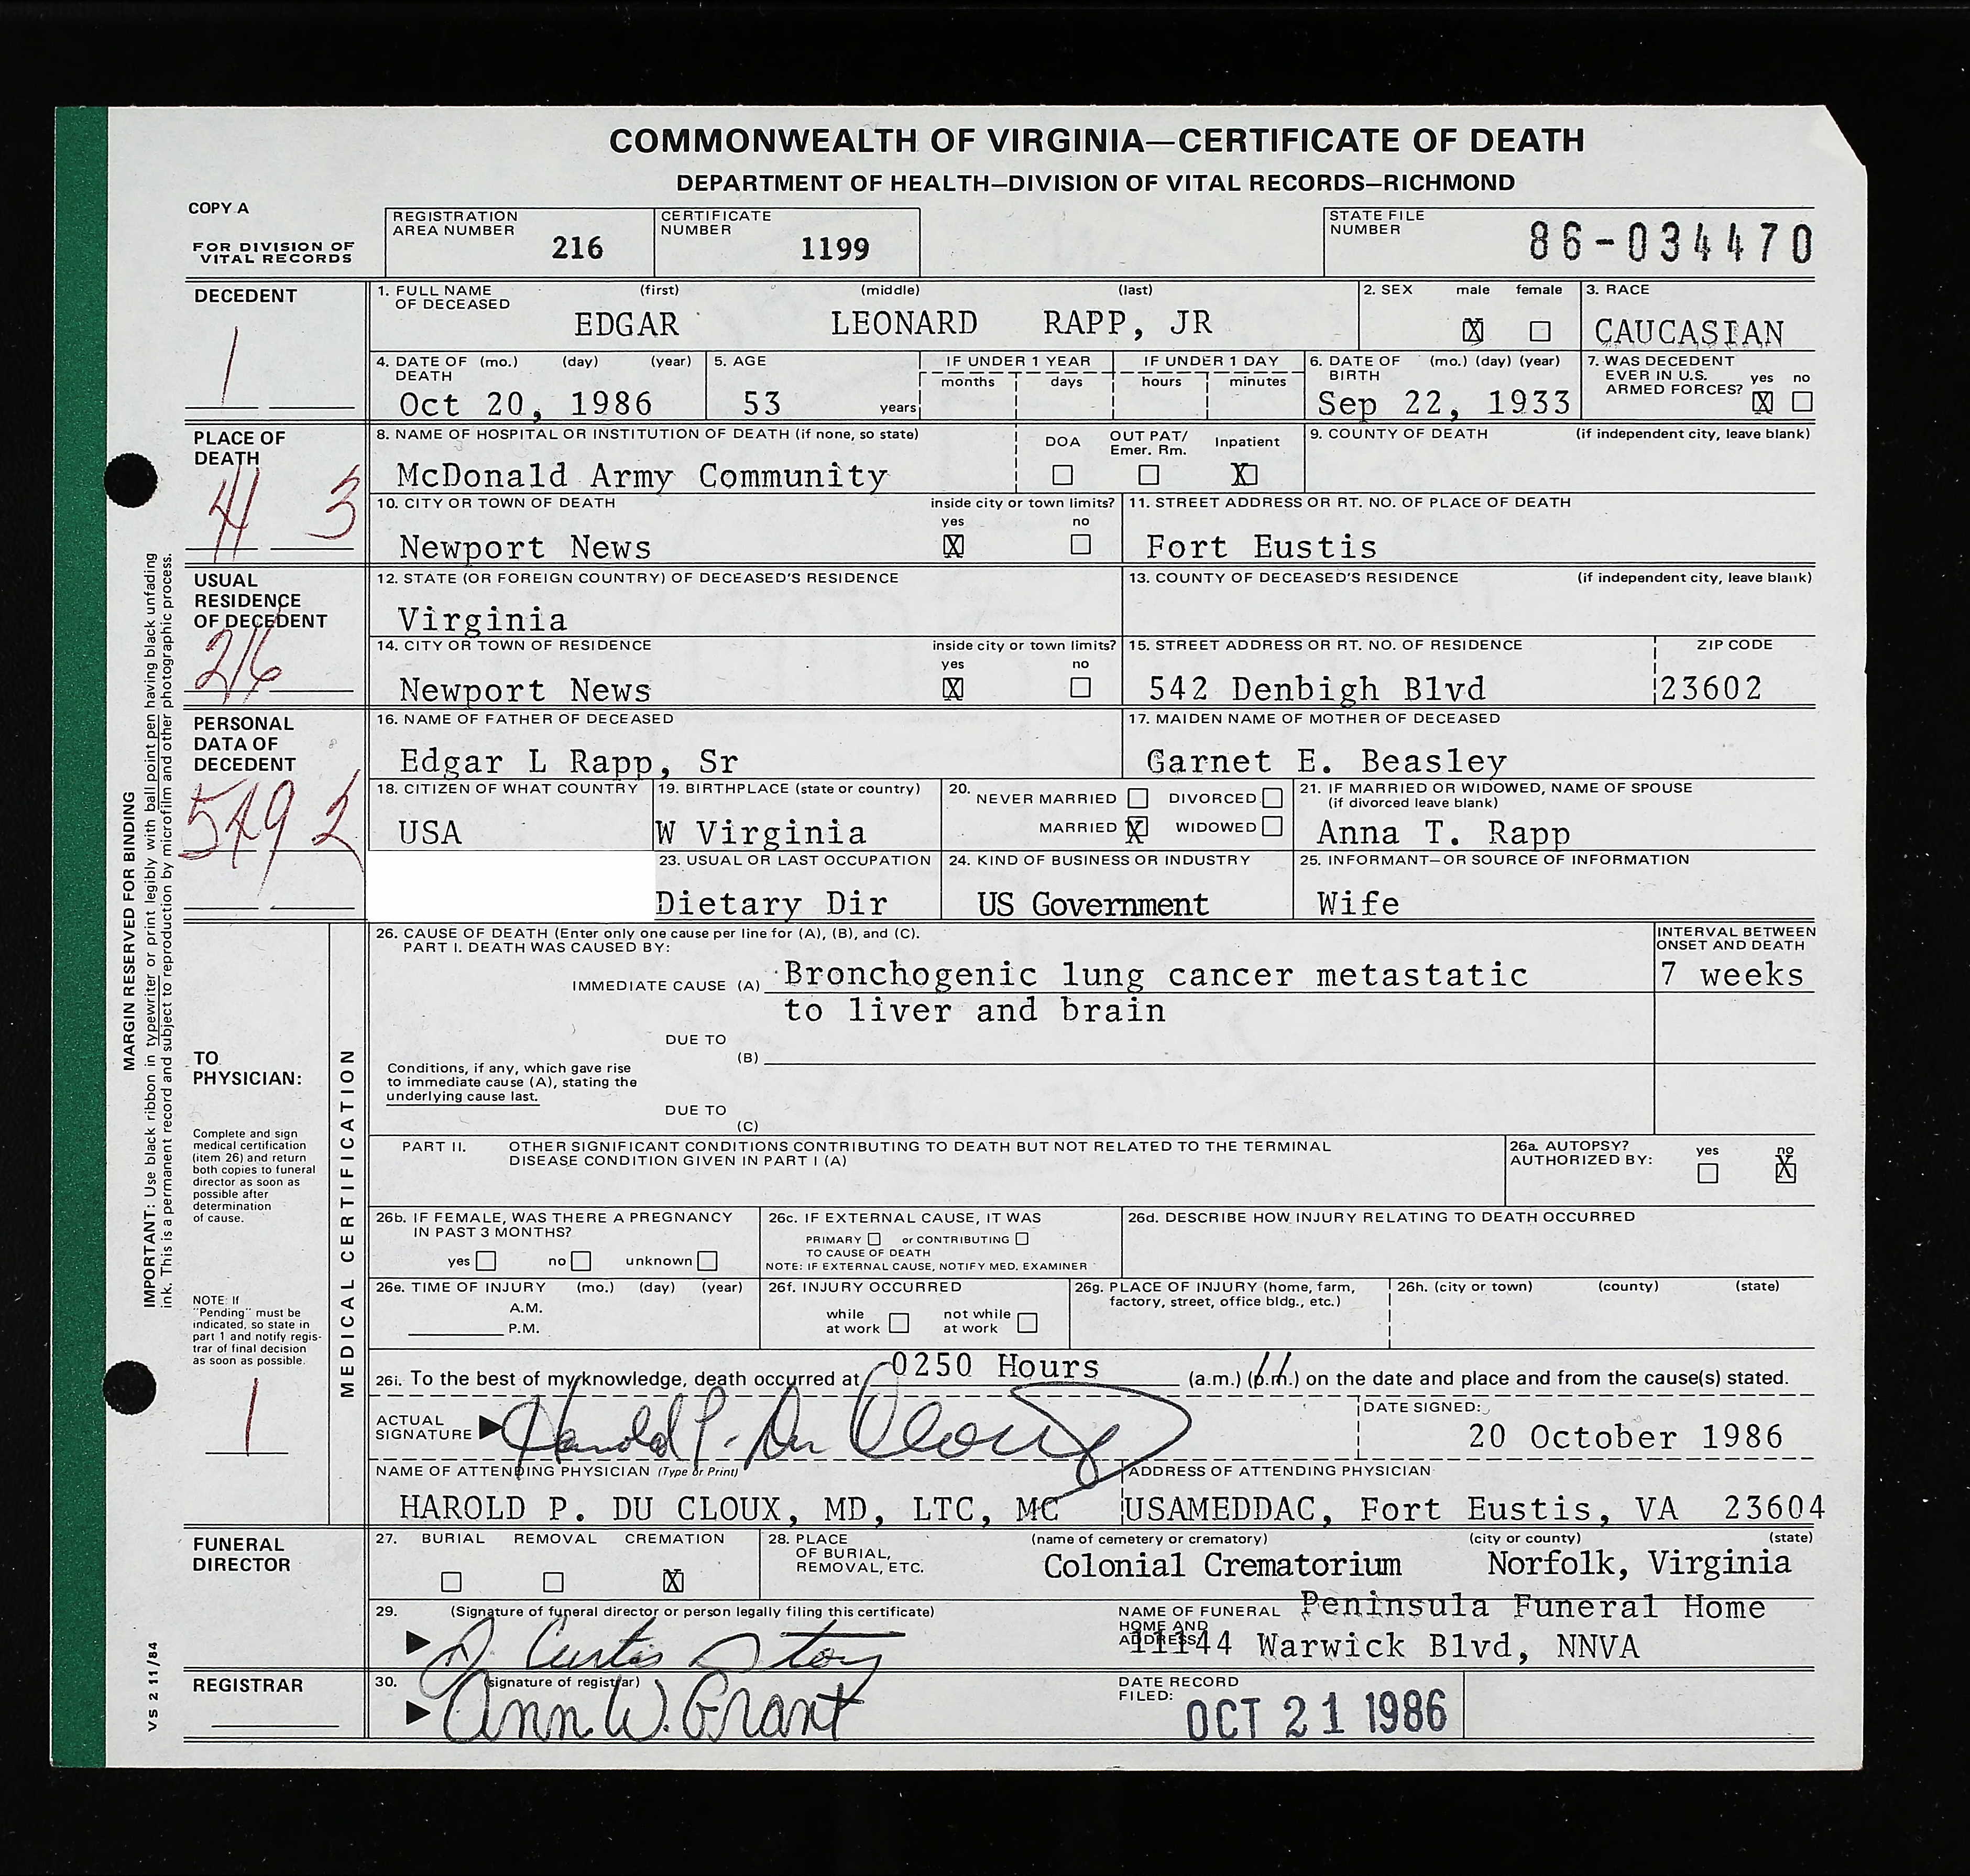 COMMONWEALTH OF VIRGINIA—CERTIFICATE OF DEATH
DEPARTMENT OF HEALTH—DIVISION OF VITAL RECORDS—RICHMOND
COPY A
FOR DIVISION OF
VITAL RECORDS
REGISTRATION
AREA NUMBER 216
CERTIFICATE
NUMBER 1199
STATE FILE
NUMBER 86-034470
DECEDENT
1
1. FULL NAME
OF DECEASED
(first) (middle) (last)
EDGAR LEONARD RAPP, JR
2. SEX male female
X
3. RACE
CAUCASIAN
4. DATE OF (mo.) (day) (year)
DEATH
Oct 20, 1986
5. AGE
53 years
IF UNDER 1 YEAR
months days
IF UNDER 1 DAY
hours minutes
6. DATE OF (mo.) (day) (year)
BIRTH
Sep 22, 1933
7. WAS DECEDENT
EVER IN U.S. yes no
ARMED FORCES? X
PLACE OF
DEATH
3
8. NAME OF HOSPITAL OR INSTITUTION OF DEATH (if none, so state)
McDonald Army Community
DOA OUT PAT/
Emer. Rm. Inpatient
X
9. COUNTY OF DEATH (if independent city, leave blank)
10. CITY OR TOWN OF DEATH inside city or town limits?
yes no
Newport News X
11. STREET ADDRESS OR RT. NO. OF PLACE OF DEATH
Fort Eustis
USUAL
RESIDENCE
OF DECEDENT
216
12. STATE (OR FOREIGN COUNTRY) OF DECEASED'S RESIDENCE
Virginia
13. COUNTY OF DECEASED'S RESIDENCE (if independent city, leave blank)
14. CITY OR TOWN OF RESIDENCE inside city or town limits?
yes no
Newport News X
15. STREET ADDRESS OR RT. NO. OF RESIDENCE ZIP CODE
542 Denbigh Blvd 23602
PERSONAL
DATA OF
DECEDENT
16. NAME OF FATHER OF DECEASED
Edgar L Rapp, Sr
17. MAIDEN NAME OF MOTHER OF DECEASED
Garnet E. Beasley
18. CITIZEN OF WHAT COUNTRY
USA
19. BIRTHPLACE (state or country)
W Virginia
20. NEVER MARRIED DIVORCED
MARRIED X WIDOWED
21. IF MARRIED OR WIDOWED, NAME OF SPOUSE
(if divorced leave blank)
Anna T. Rapp
23. USUAL OR LAST OCCUPATION
Dietary Dir
24. KIND OF BUSINESS OR INDUSTRY
US Government
25. INFORMANT—OR SOURCE OF INFORMATION
Wife
MARGIN RESERVED FOR BINDING
IMPORTANT: Use black ribbon in typewriter or print legibly with ball point pen having black unfading
ink. This is a permanent record and subject to reproduction by microfilm and other photographic process.
VS 2 11/84
TO
PHYSICIAN:
Complete and sign
medical certification
(item 26) and return
both copies to funeral
director as soon as
possible after
determination
of cause.
NOTE: If
"Pending" must be
indicated, so state in
part 1 and notify regis-
trar of final decision
as soon as possible.
1
MEDICAL CERTIFICATION
26. CAUSE OF DEATH (Enter only one cause per line for (A), (B), and (C).
PART I. DEATH WAS CAUSED BY:
INTERVAL BETWEEN
ONSET AND DEATH
IMMEDIATE CAUSE (A) Bronchogenic lung cancer metastatic 7 weeks
to liver and brain
DUE TO
(B)
Conditions, if any, which gave rise
to immediate cause (A), stating the
underlying cause last.
DUE TO
(C)
PART II. OTHER SIGNIFICANT CONDITIONS CONTRIBUTING TO DEATH BUT NOT RELATED TO THE TERMINAL
DISEASE CONDITION GIVEN IN PART I (A)
26a. AUTOPSY? yes no
AUTHORIZED BY: X
26b. IF FEMALE, WAS THERE A PREGNANCY
IN PAST 3 MONTHS?
yes no unknown
26c. IF EXTERNAL CAUSE, IT WAS
PRIMARY or CONTRIBUTING
TO CAUSE OF DEATH
NOTE: IF EXTERNAL CAUSE, NOTIFY MED. EXAMINER
26d. DESCRIBE HOW INJURY RELATING TO DEATH OCCURRED
26e. TIME OF INJURY (mo.) (day) (year)
A.M.
P.M.
26f. INJURY OCCURRED
while
at work
not while
at work
26g. PLACE OF INJURY (home, farm,
factory, street, office bldg., etc.)
26h. (city or town) (county) (state)
26i. To the best of my knowledge, death occurred at 0250 Hours (a.m.) (p.m.) on the date and place and from the cause(s) stated.
ACTUAL
SIGNATURE Harold P. Du Cloux
DATE SIGNED:
20 October 1986
NAME OF ATTENDING PHYSICIAN (Type or Print)
HAROLD P. DU CLOUX, MD, LTC, MC
ADDRESS OF ATTENDING PHYSICIAN
USAMEDDAC, Fort Eustis, VA 23604
FUNERAL
DIRECTOR
27. BURIAL REMOVAL CREMATION
X
28. PLACE
OF BURIAL,
REMOVAL, ETC.
(name of cemetery or crematory) (city or county) (state)
Colonial Crematorium Norfolk, Virginia
29. (Signature of funeral director or person legally filing this certificate)
Curtis
NAME OF FUNERAL
HOME AND
ADDRESS:
Peninsula Funeral Home
11144 Warwick Blvd, NNVA
REGISTRAR
30. (signature of registrar)
Ann W. Grant
DATE RECORD
FILED:
OCT 21 1986